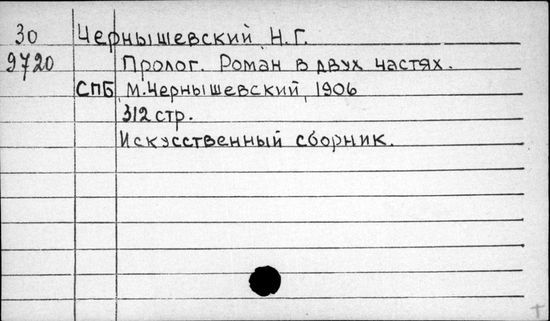 30 Чернышевский Н.Г.
9720 Пролог. Роман в двух частях.
СПБ М.Чернышевский, 1906
312 стр.
Искусственный сборник.